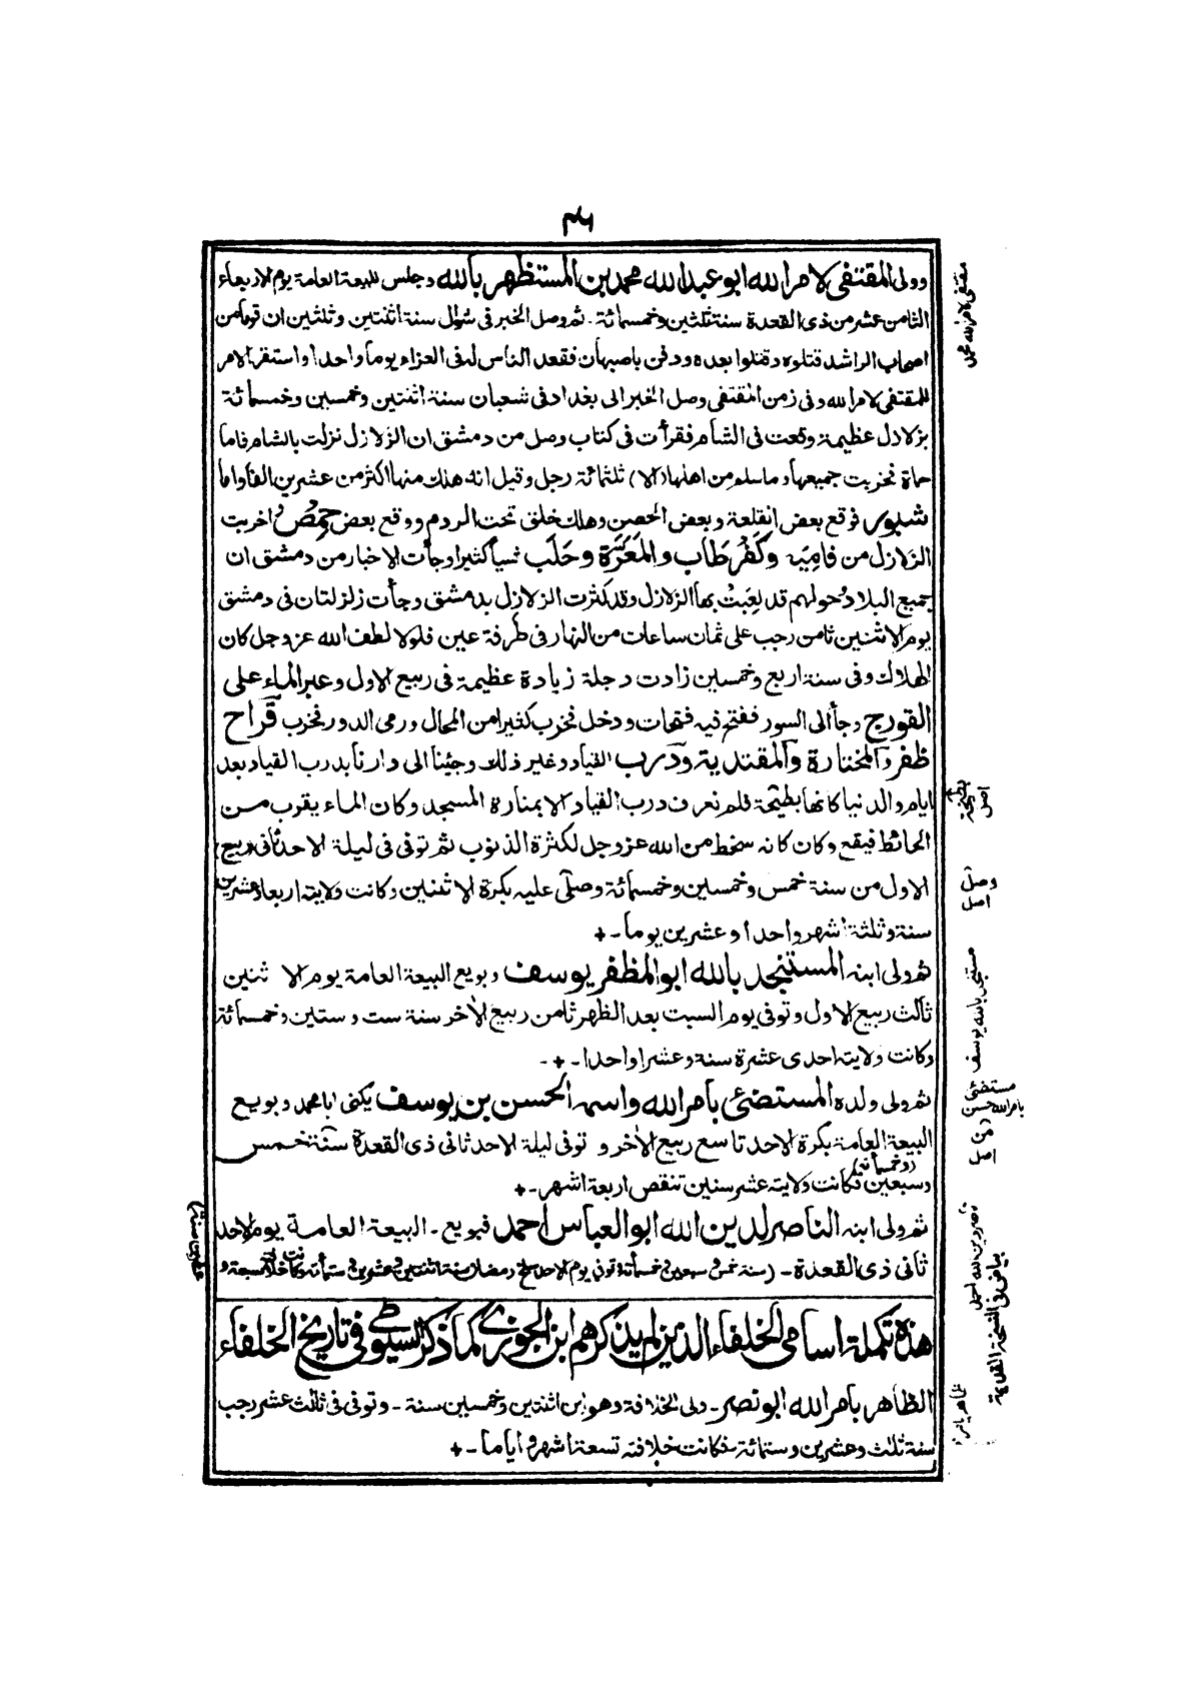 ٤٦
وولى المقتفى لامر الله ابو عبد الله محمد بن المستظهر بالله وجلس للبيعة العامة يوم الاربعاء
الثامن عشر من ذى القعدة سنة ثلثين وخمسمائة۔ ثم وصل الخبر فى شوال سنة اثنتين وثلثين ان قوما من
اصحاب الراشد قتلوه وقتلوا بعده ودفن باصبهان فقعد الناس له فى العزاء يوما واحدا واستقر الامر
للمقتفى لامر الله وفى زمن المقتفى وصل الخبر الى بغداد فى شعبان سنة اثنتين وخمسين وخمسمائة
بزلازل عظيمة وقعت فى الشام فقرأت فى كتاب وصل من دمشق ان الزلازل نزلت بالشام فاما
حماة فخربت جميعها وما سلم من اهلها (الا) ثلثمائة رجل وقيل انه هلك منها اكثر من عشرين الفا واما
شيزر فوقع بعض القلعة وبعض الحصن وهلك خلق تحت الردم ووقع بعض حِمص واخربت
الزلازل من فامِيَه وكَفَرطَاب والمَعَرّة وحَلَب شيأ كثيرا وجأت الاخبار من دمشق ان
جميع البلاد حولهم قد لعِبَتْ بها الزلازل وقد كثرت الزلازل بدمشق وجأت زلزلتان فى دمشق
يوم الاثنين ثامن رجب على ثمان ساعات من النهار فى طرفة عين فلولا لطف الله عز وجل كان
الهلاك وفى سنة اربع وخمسين زادت دجلة زيادة عظيمة فى ربيع الاول وعبر الماء على
القورج وجأ الى السور ففتح فيه فتحات ودخل فخرب كثيرا من المحال ورمى الدور فخرب قراح
ظفر والمختارة والمقتدية ودرب القيار وغير ذلك وجئنا الى دارنا بدرب القيار بعد
ايام والدنيا كانها بطيحة فلم نعرف درب القيار الا بمنارة المسجد وكان الماء يقرب من
الحائط فيقع وكان كانه سخط من الله عز وجل لكثرة الذنوب ثم توفى فى ليلة الاحد ثانى ربيع
الاول من سنة خمس وخمسين وخمسمائة وصلى عليه بكرة الاثنين وكانت ولايته اربعا وعشرين
سنة وثلثة اشهر واحدا وعشرين يوما۔+
ثم ولى ابنه المستنجد بالله ابو المظفر يوسف وبويع البيعة العامة يوم الاثنين
ثالث ربيع الاول وتوفى يوم السبت بعد الظهر ثامن ربيع الآخر سنة ست وستين وخمسمائة
وكانت ولايته احدى عشرة سنة وعشرا واحدا۔+۔
ثم ولى ولده المستضئ بأمر الله واسمه الحسن بن يوسف يكنى ابا محمد وبويع
البيعة العامة بكرة الاحد تاسع ربيع الآخر و توفى ليلة الاحد ثانى ذى القعدة سنة خمس
وسبعين (وخمسمأية) فكانت ولايته عشر سنين تنقص اربعة اشهر۔+
ثم ولى ابنه الناصر لدين الله ابو العباس احمد فبويع۔ البيعة العامة يوم الاحد
ثانى ذى القعدة۔ (سنة خمس وسبعين وخمسمأة وتوفى يوم الاحد سلخ رمضان سنة اثنتين وعشرين وستمأة وكانت خلافته سبعة و
هذه تكملة اسامى الخلفاء الذين لم يذكرهم ابن الجوزى كما ذكر السيوطى فى تاريخ الخلفاء
الظاهر بأمر الله ابو نصر۔ ولى الخلافة وهو ابن اثنتين وخمسين سنة۔ وتوفى فى ثالث عشر رجب
سنة ثلث وعشرين وستمائة فكانت خلافته تسعة اشهر و اياما۔+
مقتفى لامر الله محمد
بطيحة
اصل
وصل
اصل
مستنجد بالله يوسف
مستضئى
بامر الله حسن
اصل
ناصر دين الله احمد
بياض فى النسخة القديمة
ظاهر بامر